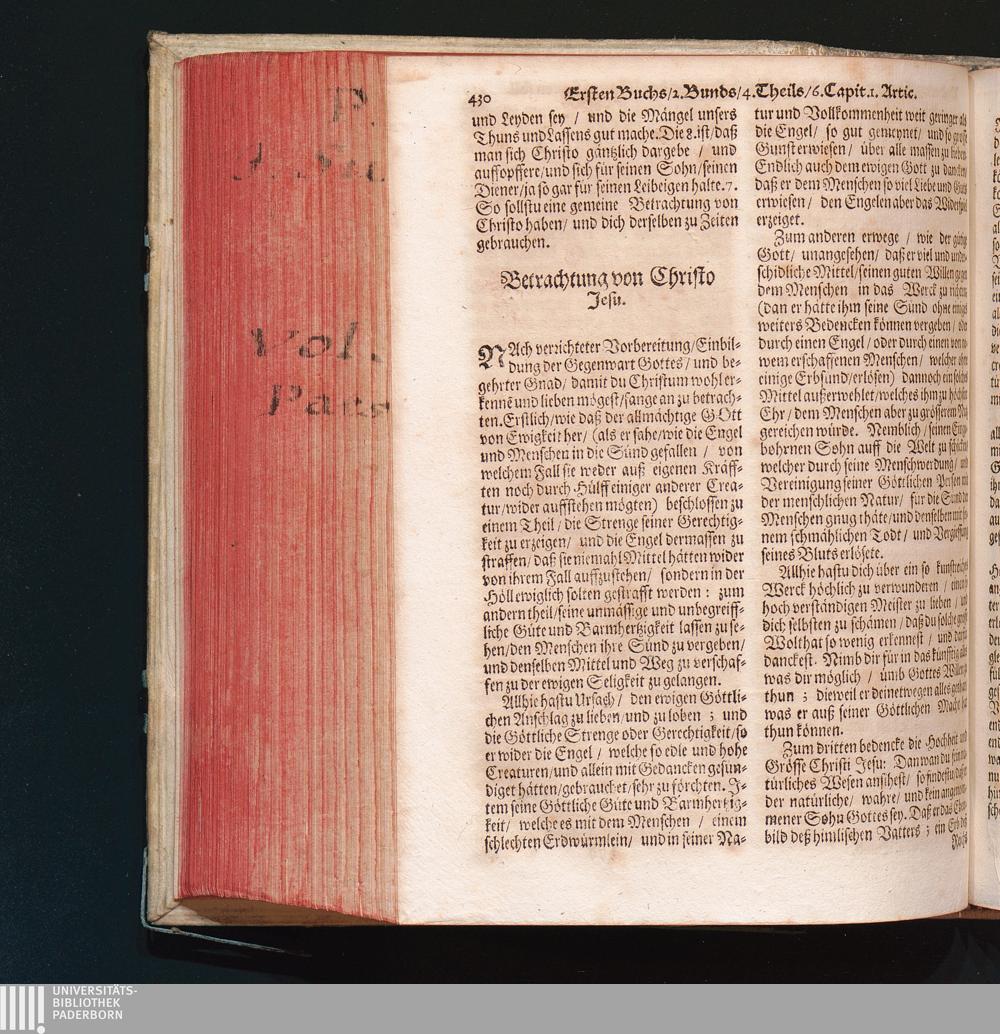 430 Ersten Buchs/2. Bunds/4. Theils/6. Capit. 1. Artic.
und Leyden sey / und die Mängel unsers
Thuns und Lassens gut mache. Die 8. ist/daß
man sich Christo gäntzlich dargebe / und
auffopffere/und sich für seinen Sohn/seinen
Diener/ja so gar für seinen Leibeigen halte. 7.
So sollstu eine gemeine Betrachtung von
Christo haben/ und dich derselben zu Zeiten
gebrauchen.
Betrachtung von Christo
Jesu.
NAch verrichteter Vorbereitung/Einbil-
dung der Gegenwart Gottes/ und be-
gehrter Gnad/ damit du Christum wohl er-
kennē und lieben mögest/fange an zu betrach-
ten. Erstlich/wie daß der allmächtige GOtt
von Ewigkeit her/ (als er sahe/wie die Engel
und Menschen in die Sünd gefallen / von
welchem Fall sie weder auß eigenen Kräff-
ten noch durch Hülff einiger anderer Crea-
tur/wider auffstehen mögten) beschlossen zu
einem Theil/ die Strenge seiner Gerechtig-
keit zu erzeigen/ und die Engel dermassen zu
straffen/ daß sie niemahl Mittel hätten wider
von ihrem Fall auffzustehen/ sondern in der
Höll ewiglich solten gestrafft werden: zum
andern theil/seine unmässige und unbegreiff-
liche Güte und Barmhertzigkeit lassen zu se-
hen/den Menschen ihre Sünd zu vergeben/
und denselben Mittel und Weg zu verschaf-
fen zu der ewigen Seligkeit zu gelangen.
Allhie hastu Ursach/ den ewigen Göttli-
chen Anschlag zu lieben/und zu loben; und
die Göttliche Strenge oder Gerechtigkeit/so
er wider die Engel / welche so edle und hohe
Creaturen/und allein mit Gedancken gesün-
diget hätten/gebrauchet/sehr zu förchten. J-
tem seine Göttliche Güte und Barmhertzig-
keit/ welche es mit dem Menschen / einem
schlechten Erdwürmlein/ und in seiner Na-
tur und Vollkommenheit weit geringer als
die Engel/ so gut gemeynet/ und so grosse
Gunsterwiesen/ über alle massen zu lieben.
Endlich auch dem ewigen Gott zu dancken/
daß er dem Menschen so viel Liebe und Guts
erwiesen/ den Engelen aber das Widerspiel
erzeiget.
Zum anderen erwege / wie der gütige
Gott/ unangesehen/ daß er viel und under-
schidliche Mittel/seinen guten Willen gegen
dem Menschen in das Werck zu richten
(dan er hätte ihm seine Sünd ohne einiges
weiters Bedencken können vergeben/ oder
durch einen Engel/ oder durch einen von ne-
wem erschaffenen Menschen/ welcher ohne
einige Erbsünd/erlösen) dannoch ein solches
Mittel außerwehlet/welches ihm zu höchster
Ehr/ dem Menschen aber zu grösserem Nutz
gereichen würde. Nemblich/ seinen Einge-
bohrnen Sohn auff die Welt zu schicken/
welcher durch seine Menschwerdung/ und
Vereinigung seiner Göttlichen Person mit
der menschlichen Natur/ für die Sünd der
Menschen gnug thäte/und denselben mit sei-
nem schmählichen Todt/ und Vergiessung
seines Bluts erlösete.
Allhie hastu dich über ein so kunstreiches
Werck höchlich zu verwunderen / einen so
hoch verständigen Meister zu lieben / und
dich selbsten zu schämen/ daß du solche grosse
Wolthat so wenig erkennest / und darum
danckest. Nimb dir für in das künfftig alles
was dir möglich / umb Gottes Willen zu
thun; dieweil er deinetwegen alles gethan
was er auß seiner Göttlichen Macht hat
thun können.
Zum dritten bedencke die Hochheit und
Grösse Christi Jesu: Dan wan du sein na-
türliches Wesen ansihest/ so findestu/daß er
der natürliche/ wahre/ und kein angenom-
mener Sohn Gottes sey. Daß er das Eben-
bild deß himlischen Vatters; ein Erb deß
P.
Vol.
UNIVERSITÄTS-
BIBLIOTHEK
PADERBORN